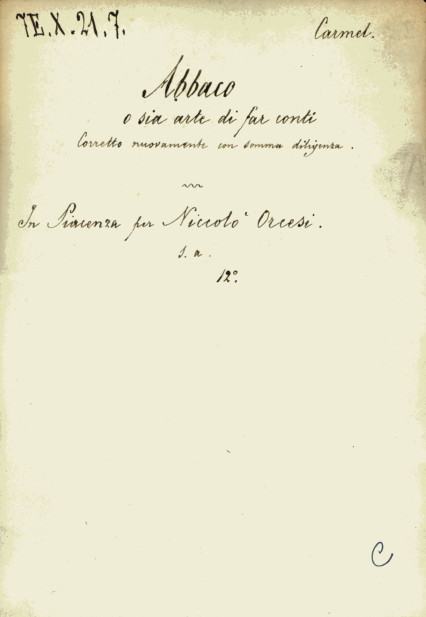 7E.X.21.7.
Carmel.
Abbaco
o sia arte di far conti
Corretto nuovamente con somma diligenza.
In Piacenza per Niccolò Orcesi.
s. a.
12°.
C